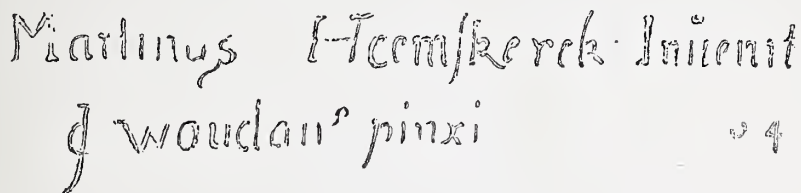 Martinus Heemskerck · Inuenit
g woudan⁹ pinxi